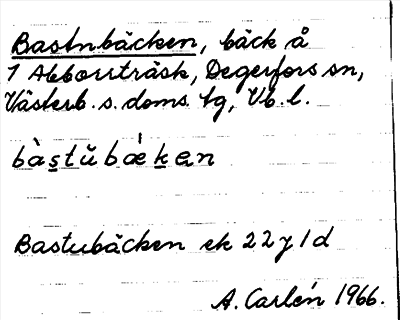 Bastnbäcken, bäck å
1 Abborrträsk, Degerfors sn,
Västerb. s. doms. tg, Vb. l.
bàstŭbækən
Bastubäcken ek 22 y 1 d
A. Carlén 1966.